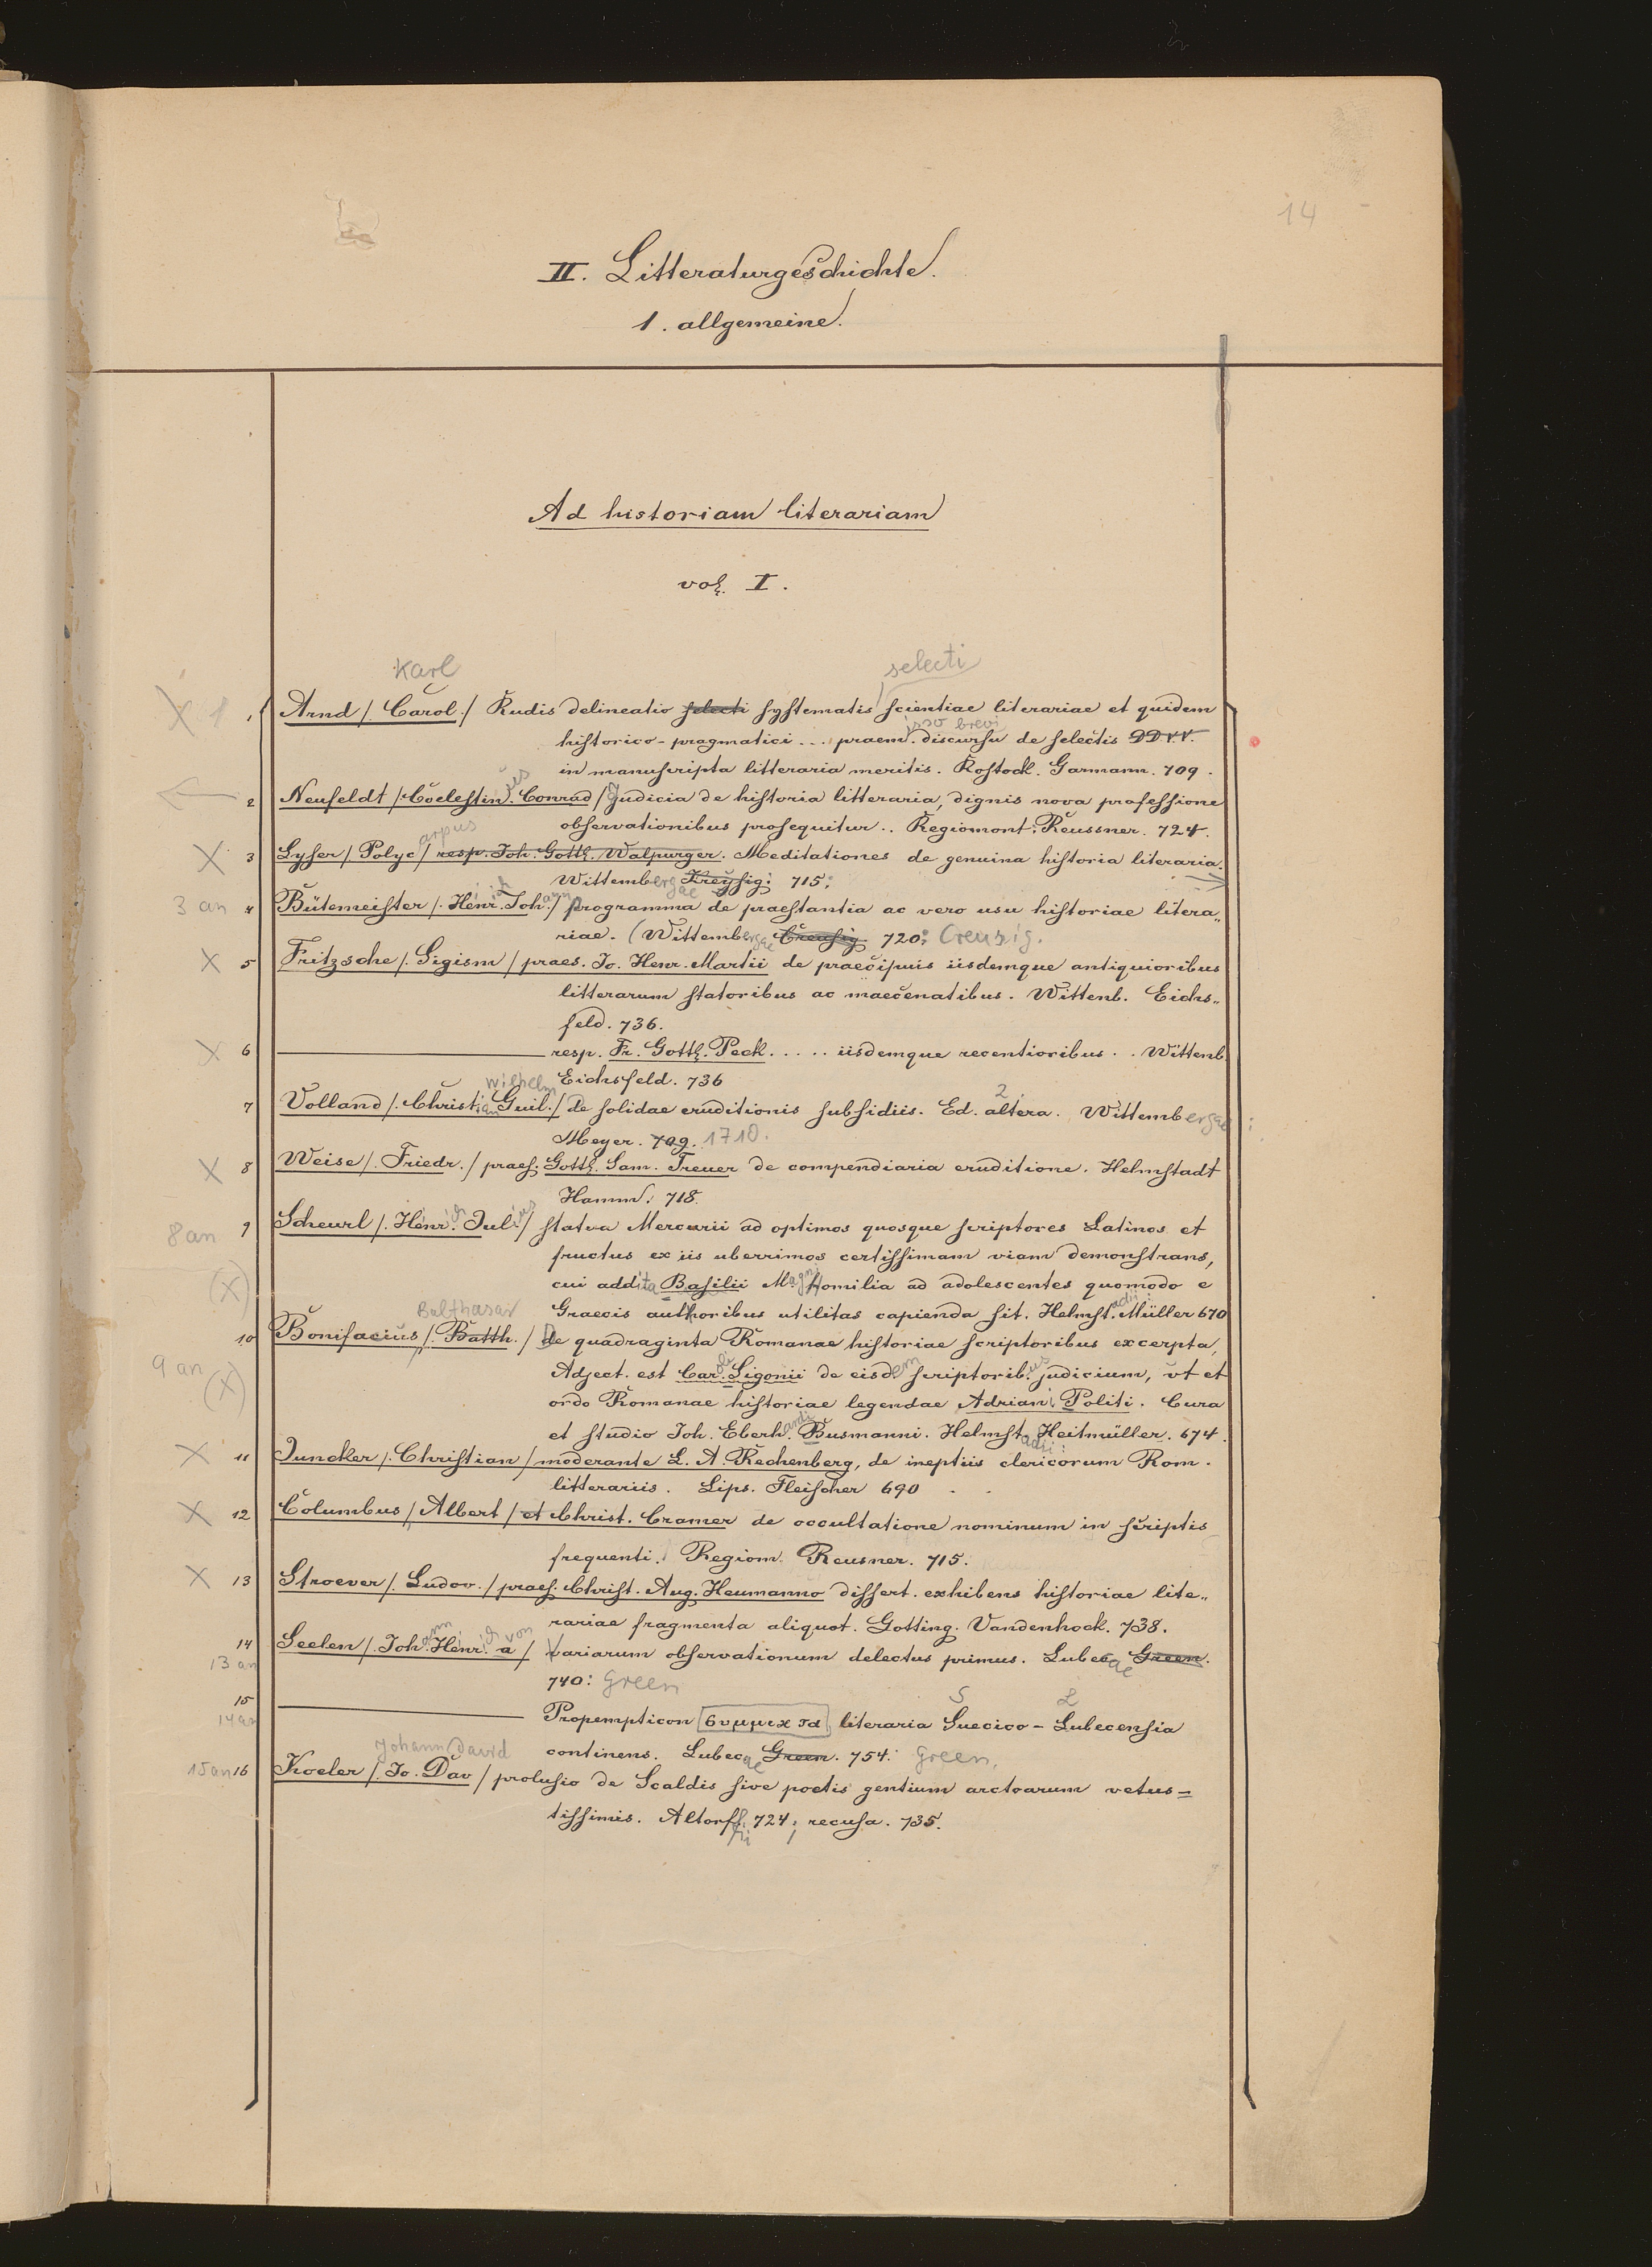 14
II. Litteraturgeschichte.
1. allgemeine.
Ad historiam literariam
vol. I.
Karl selecti
X 1 1 Arnd /. Carol./ Rudis delineatio selecti systematis scientiae literariae et quidem
historico-pragmatici ... praem. discursu de selectis DD VV.
in manuscripta litteraria meritis. Rostock. Garmann. 709.
2 Neufeldt /. Coelestin. Conrad / Judicia de historia litteraria, dignis nova professione
observationibus prosequitur .. Regiomont. Reussner. 724.
X 3 Lyser / Polycarpus / resp. Joh. Gottl. Walpurger. Meditationes de genuina historia literaria.
Wittembergae Kreysig: 715:
3 an 4 Bütemeister /. Heinrich Johann / programma de praestantia ac vero usu historiae litera„
riae. (Wittembergae Creusig. 720: Creuzig.
X 5 Fritzsche /. Sigism / praes. Jo. Henr. Martii de praecipuis iisdemque antiquioribus
litterarum statoribus ac maecenatibus. Wittenb. Eichs„
feld. 736.
X 6 resp. Fr. Gottl. Peck ..... iisdemque recentioribus .. Wittenb
Eichsfeld. 736
Wilhelm 2.
7 Volland /. Christian Guil./ de solidae eruditionis subsidiis. Ed. altera. Wittembergae:
Meyer. 709. 1710.
X 8 Weise /. Friedr. / praes. Gottl. Sam. Treuer de compendiaria eruditione. Helmstadt
Hamm: 718.
8 an 9 Scheurl /. Heinrich Julius / statua Mercurii ad optimos quosque scriptores Latinos et
fructus ex iis uberrimos certissimam viam demonstrans,
(X) cui addita Basilii Magni Homilia ad adolescentes quomodo e
Graecis authoribus utilitas capienda sit. Helmstadii: Müller 670
Balthasar
10 Bonifacius /. Batth. / De quadraginta Romanae historiae scriptoribus excerpta,
9 an (X) Adject. est Caroli Sigonii de eisdem scriptoribus judicium, ut et
ordo Romanae historiae legendae Adriani Politi. Cura
et studio Joh. Eberhardi Busmanni. Helmstadii: Heitmüller. 674.
X 11 Juncker /. Christian / moderante L. A. Rechenberg, de ineptiis clericorum Rom.
litterariis. Lips. Fleischer 690
X 12 Columbus / Albert / et Christ. Cramer de occultatione nominum in scriptis
frequenti. Regiom. Reusner. 715.
X 13 Stroever /. Ludov. / praes. Christ. Aug. Heumanno dissert. exhibens historiae lite„
rariae fragmenta aliquot. Gotting. Vandenhock. 738.
14 Seelen /. Johann Heinrich a von / Variarum observationum delectus primus. Lubecae Green.
13 an 740: Green
15 Propempticon [συμμικτα] literaria Suecico-Lubecensia
14 an continens. Lubecae Green. 754: Green.
Johann David
15 an 16 Koeler /. Jo. Dav / prolusio de Scaldis sive poetis gentium arctoarum vetus=
tissimis. Altorffi 724; recusa. 735.